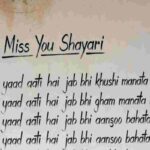 Miss You Shayari
yaad aati hai jab bhi khushi manata
yaad aati hai jab bhi gham manata
yaad aati hai jab bhi aansoo bahata
yaad aati hai jab bhi aansoo bahata